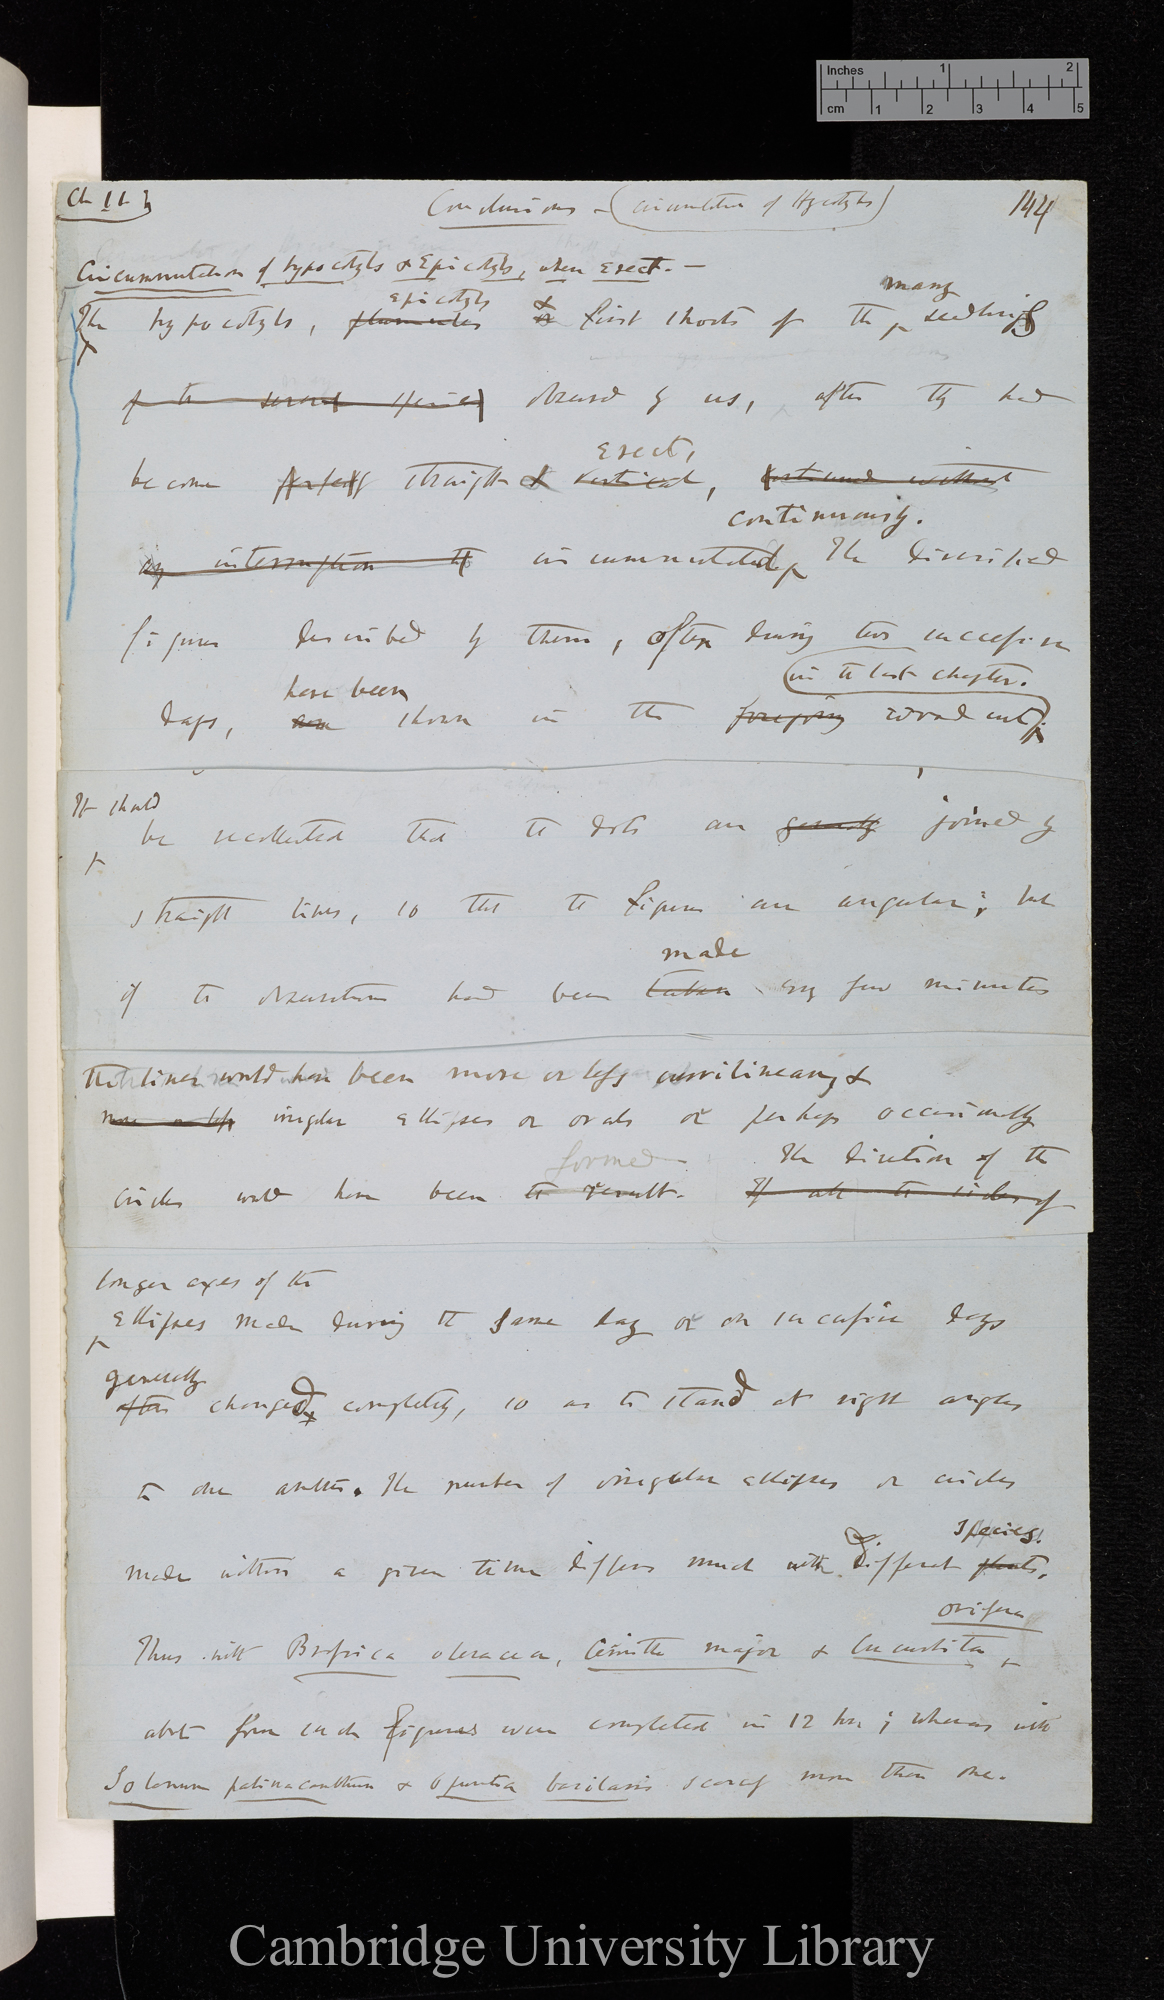 Inches 1 2
cm 1 2 3 4 5
Ch II
Conclusions – (circumnutation of Hypocotyls) 144
Circumnutation of hypocotyls & Epicotyls, when erect. —
epicotyls & many
The hypocotyls, plumules or first shoots of the seedlings
of the several species observed by us, after they had
erect,
become perfectly straight & vertical, continued without
continuously.
any interruption to circumnutated The diversified
figures described by them, often during two successive
in the last chapter.
have been
days, are shown in the foregoing woodcuts
It should
be recollected that the dots are generally joined by
straight lines, so that the figures are angular; but
made
if the observations had been taken every few minutes
the lines would have been more or less curvilinear, &
more or less irregular ellipses or ovals or perhaps occasionally
formed The direction of the
circles would have been the result. If all the sides of
longer axes of the
ellipses made during the same day or on successive days
generally
often changed completely, so as to stand at right angles
to one another. The number of irregular ellipses or circles
species.
made within a given time differs much with different plants.
ovifera
Thus with Brassica oleracea, Cerinthe major & Cucurbita
about four such figures were completed in 12 hrs; whereas with
Solanum palinacanthum & Opuntia basilaris scarcely more than one.
Cambridge University Library